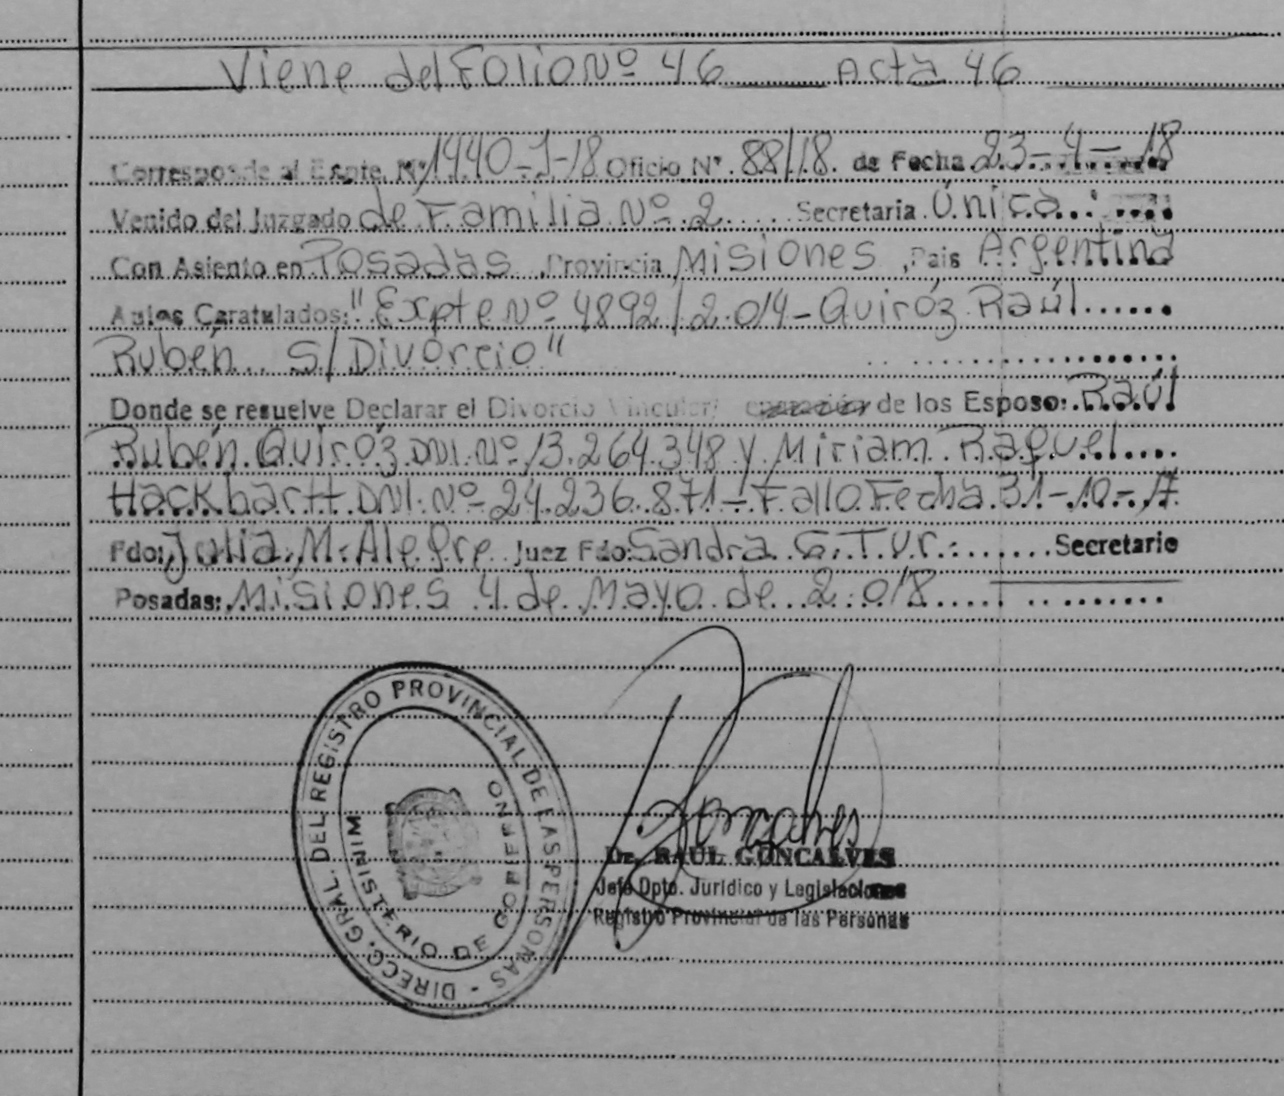 Viene del Folio Nº 46 Acta 46
Corresponde al Expte. Nº 1440-J-18 Oficio Nº 88/18. de Fecha 23-4-18
Venido del Juzgado de Familia Nº 2 Secretaria Única
Con Asiento en Posadas, Provincia Misiones, Pais Argentina
Autos Caratulados: "Expte Nº 4892/2.014-Quiróz Raúl
Rubén S/Divorcio"
Donde se resuelve Declarar el Divorcio Vincular de los Esposo: Raúl
Rubén Quiróz DNI. Nº 13.264.348 y Miriam Raquel
Hackbartt DNI. Nº 24.236.871- Fallo Fecha 31-10-17
Fdo: Julia M. Alegre Juez Fdo: Sandra G. Tur. Secretario
Posadas: Misiones 4 de Mayo de 2.018
DIRECC. GRAL. DEL REGISTRO PROVINCIAL DE LAS PERSONAS -
MINISTERIO DE GOBIERNO
Dr. RAUL GONCALVES
Jefe Dpto. Jurídico y Legislaciones
Registro Provincial de las Personas